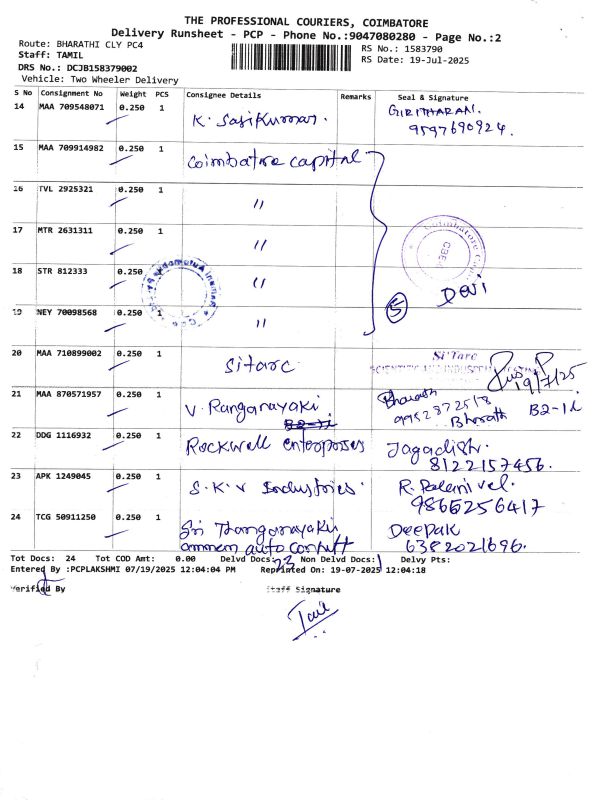 THE PROFESSIONAL COURIERS, COIMBATORE
Delivery Runsheet - PCP - Phone No.:9047080280 - Page No.:2
Route: BHARATHI CLY PC4 RS No.: 1583790
Staff: TAMIL RS Date: 19-Jul-2025
DRS No.: DCJB158379002
Vehicle: Two Wheeler Delivery
S No Consignment No Weight PCS Consignee Details Remarks Seal & Signature
14 MAA 709548071 0.250 1 K. Sasikumar. GIRITHARAN.
9597690924.
15 MAA 709914982 0.250 1 Coimbatore capital
16 TVL 2925321 0.250 1 "
17 MTR 2631311 0.250 1 " Coimbatore
18 STR 812333 0.250 1 " Devi
19 NEY 70098568 0.250 1 " 5
20 MAA 710899002 0.250 1 Sitarc Si'Tarc
SCIENTIFIC AND INDUSTRIAL TESTING
19/7/25
21 MAA 870571957 0.250 1 V. Ranganayaki Bharath
9952372518
Bharath B2-11
22 DDG 1116932 0.250 1 Rockwell enterprises Jagadish.
8122157456.
23 APK 1249045 0.250 1 S.K.V Industries. R. Palanivel.
9865256417
24 TCG 50911250 0.250 1 Sri Thanganayaki Deepak
ammam auto 6382021696.
Tot Docs: 24 Tot COD Amt: 0.00 Delvd Docs: 23 Non Delvd Docs: 1 Delvy Pts:
Entered By :PCPLAKSHMI 07/19/2025 12:04:04 PM Reprinted On: 19-07-2025 12:04:18
Verified By Staff Signature